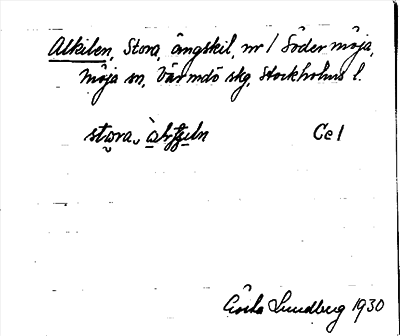 Alkilen, Stora, ängskil, nr 1 Södermöja,
Möja sn, Värmdö skg, Stockholms l.
stora
Ce 1
Gösta Lundberg 1930